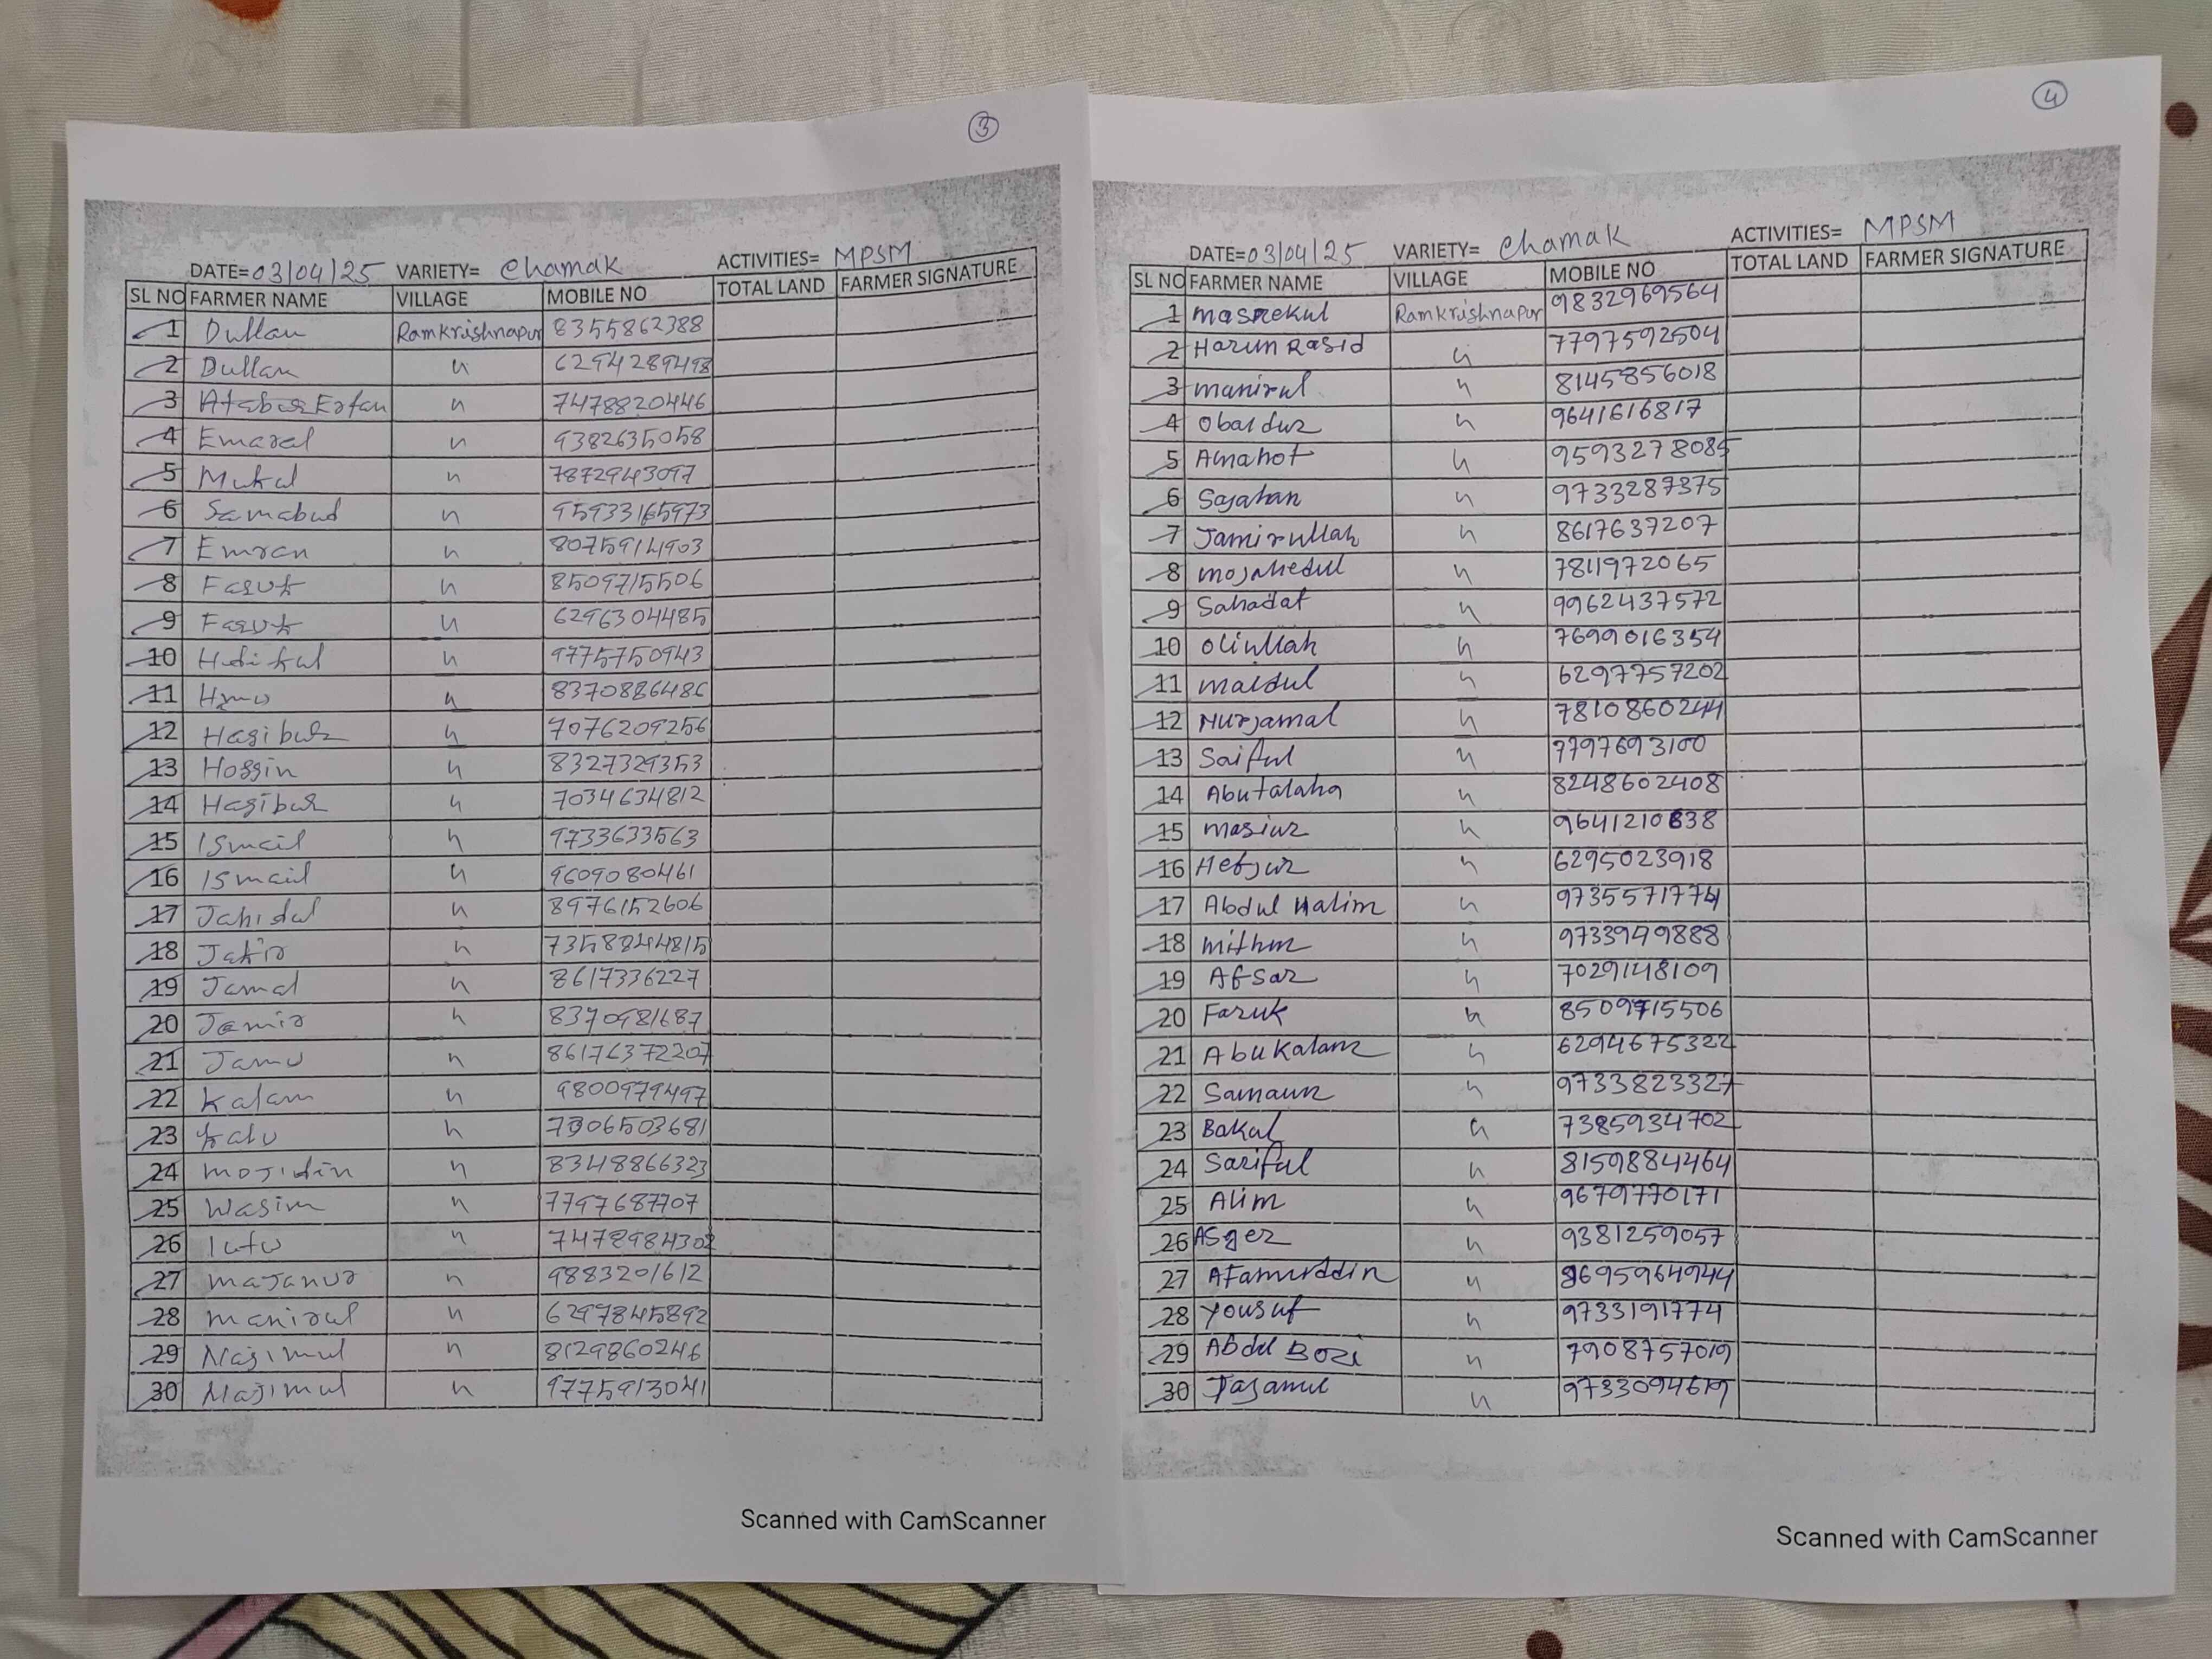 3
DATE=03/04/25 VARIETY= Chamak ACTIVITIES= MPSM
SL NO FARMER NAME VILLAGE MOBILE NO TOTAL LAND FARMER SIGNATURE
1 Dullau Ramkrishnapur 8355862388
2 Dullau " 6294289498
3 Atabur Erfan " 7478820446
4 Emaral " 9382635058
5 Mukul " 7872943097
6 Samabud " 95933165973
7 Emran " 8075914903
8 Faruk " 8509715506
9 Faruk " 6296304485
10 " 9775750943
11 " 8370886486
12 Hasibur " 7076209256
13 Hossin " 8327329353
14 Hasibur " 7034634812
15 Ismail " 9733633563
16 Ismail " 9609080461
17 Jahidul " 8976152606
18 Jakir " 73588244815
19 Jamal " 8617336227
20 Jamir " 8370981687
21 Jamu " 86176372207
22 Kalam " 9800979497
23 Kalu " 7306503681
24 Mojidin " 8348866323
25 Wasim " 7797687707
26 " 7478984302
27 Majanur " 9883201612
28 Manirul " 62978415892
29 Najimul " 8129860246
30 Najimul " 9775913041
Scanned with CamScanner
4
DATE=03/04/25 VARIETY= Chamak ACTIVITIES= MPSM
SL NO FARMER NAME VILLAGE MOBILE NO TOTAL LAND FARMER SIGNATURE
1 Masrekul Ramkrishnapur 9832969564
2 Harun Rasid " 7797592504
3 Manirul " 8145856018
4 Obaidur " 9641616817
5 Amahot " 9593278085
6 Sajahan " 9733287375
7 Jamirullah " 8617637207
8 Mojahedul " 7811972065
9 Sahadat " 9962437572
10 Oliullah " 7699016354
11 Maidul " 6297757202
12 Nurjamal " 7810860244
13 Saiful " 7797693100
14 Abutalaha " 8248602408
15 Masiur " 9641210838
16 Hefjur " 6295023918
17 Abdul Halim " 9735571774
18 Mithun " 9733949888
19 Afsar " 7029148109
20 Faruk " 8509715506
21 Abu Kalam " 6294675322
22 Samaun " 9733823327
23 Bakul " 7385934702
24 Sariful " 8159884464
25 Alim " 9679770171
26 Asger " 9381259057
27 Afamuddin " 8695964944
28 Yousuf " 9733191774
29 Abdul Bozi " 7908757019
30 Tajamul " 9733094619
Scanned with CamScanner